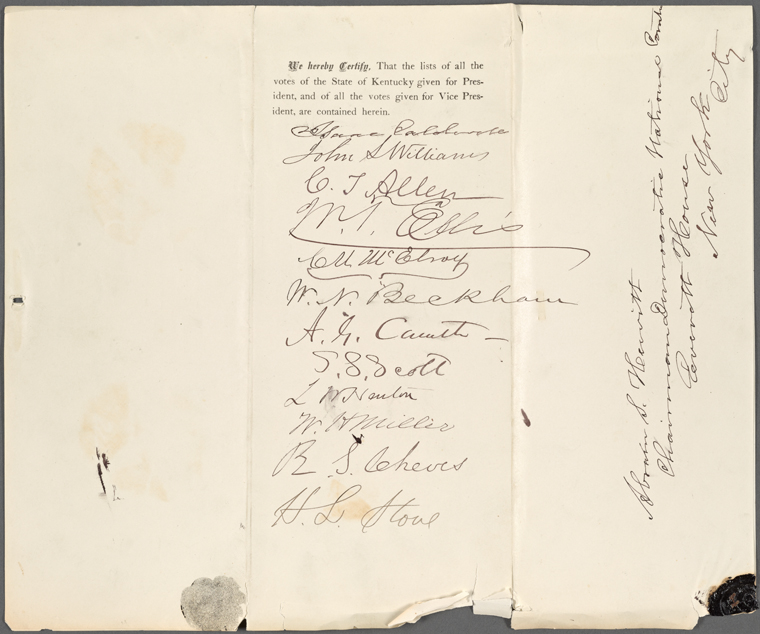 We hereby Certify, That the lists of all the
votes of the State of Kentucky given for Pres-
ident, and of all the votes given for Vice Pres-
ident, are contained herein.
Isaac Caldwell
John S Williams
C. T. Allen
W. T. Ellis
C U McElroy
W. N. Beckham
A. G. Caruth
S. S. Scott
L W Newton
W. H Miller
R. S. Cheves
H. L. Stone
Abram S. Hewitt
Chairman Democratic National
Everett House
New York
City